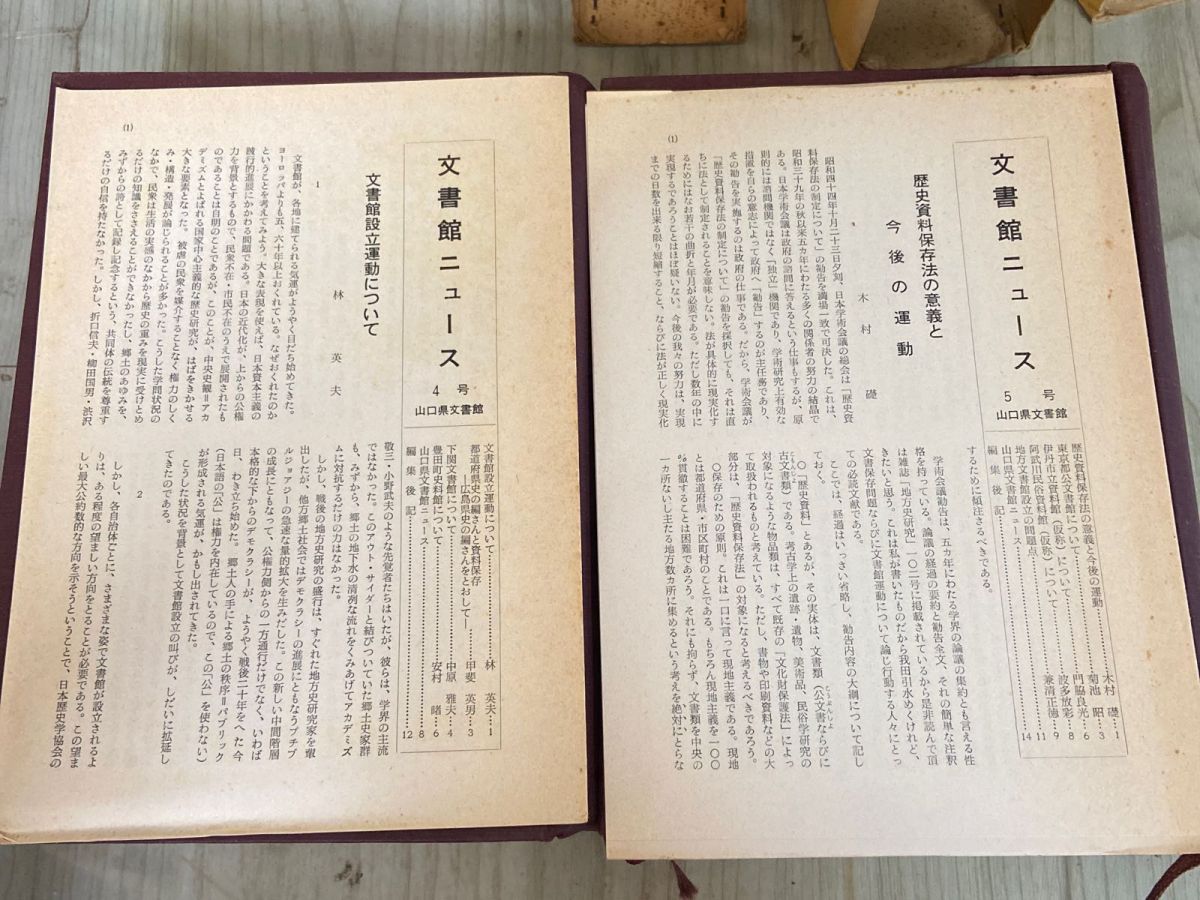 文書館ニュース
5号
山口県文書館
歴史資料保存法の意義と今後の運動…………木村 礎・1
東京都公文書館について…………菊池 昭・3
伊丹市立資料館(仮称)について…………門脇良光・6
阿武川民俗資料館(仮称)について…………波多放彩・8
地方文書館設立の問題点…………兼清正徳・9
山口県文書館ニュース…………11
編集後記…………14
歴史資料保存法の意義と
今後の運動
木村 礎
昭和四十四年十月二十三日夕刻、日本学術会議の総会は「歴史資
料保存法の制定について」の勧告を満場一致で可決した。これは、
昭和三十九年の秋以来五カ年にわたる多くの関係者の努力の結晶で
ある。日本学術会議は政府の諮問に答えるという仕事もするが、原
則的には諮問機関ではなく「独立」機関であり、学術研究上有効な
措置を自らの意志によって政府へ「勧告」するのが主任務であり、
その勧告を実施するのは政府の仕事である。だから、学術会議が
『歴史資料保存法の制定について』の勧告を採択しても、それは直
ちに法として制定されることを意味しない。法が具体的に現実化す
るためにはなお若干の曲折と年月が必要である。ただし数年の中に
実現するであろうことはほぼ疑いない。今後の我々の努力は、実現
までの日数を出来る限り短縮すること、ならびに法が正しく現実化
するために傾注さるべきである。
学術会議勧告は、五カ年にわたる学界の論議の集約とも言える性
格を持っている。論議の経過の要約と勧告全文、それの簡単な注釈
は雑誌「地方史研究」一〇二号に掲載されているから是非読んで頂
きたいと思う。これは私が書いたものだから我田引水めくけれど、
文書保存問題ならびに文書館運動について論じ行動する人々にとっ
ての必読文献である。
ここでは、経過はいっさい省略し、勧告内容の大綱について記し
ておく。
〇「歴史資料」とあるが、その実体は、文書類(公文書ならびに
古文書類)である。考古学上の遺跡・遺物、美術品、民俗学研究の
対象になるような物品類は、すべて既存の「文化財保護法」によっ
て取扱われるものと考えている。ただし、書物や印刷資料などの大
部分は、「歴史資料保存法」の対象になると考えるべきであろう。
〇保存のための原則。これは一口に言って現地主義である。現地
とは都道府県・市区町村のことである。もちろん現地主義を一〇〇
%貫徹することは困難であろう。それにも拘らず、文書類を中央の
一カ所ないし主たる地方数カ所に集めるという考えを絶対にとらな
(1)
文書館ニュース
4号
山口県文書館
文書館設立運動について…………林 英夫・1
都道府県史の編さんと資料保存
—広島県史の編さんをとおして—…………甲斐 英男・3
下関文書館について…………中原 雅夫・4
豊田町史料館について…………安村 緒・6
山口県文書館ニュース…………8
編集後記…………12
文書館設立運動について
林 英夫
1
文書館が、各地に建てられる気運がようやく目だち始めてきた。
ヨーロッパよりも五、六十年以上おくれている。なぜおくれたのか
ということを考えてみよう。大きな表現を使えば、日本資本主義の
跛行的進展にかかわる問題である。日本の近代化が、上からの公権
力を背景とするもので、民衆不在・市民不在のうえで展開されたも
のであることは自明のことであるが、このことが、中央史観=アカ
デミズムとよばれる国家中心主義的な歴史研究が、はばをきかせる
大きな要素となった。被虐の民衆を媒介することなく権力のしく
み・構造・発展が論じられることが多かった。こうした学問状況の
なかで、民衆は生活の実感のなかから歴史の重みを現実に受けとめ
るだけの知識をささえることができなかったし、郷土のあゆみを、
みずからの誇として記録し記念するという、共同体の伝統を尊重す
るだけの自信を持たなかった。しかし、折口信夫・柳田国男・渋沢
敬三・小野武夫のような先覚者たちはいたが、彼らは、学界の主流
ではなかった。このアウト・サイダーと結びついていた郷土史家群
も、みずから、郷土の地下水の清冽な流れをくみあげてアカデミズ
ムに対抗するだけの力はなかった。
しかし、戦後の地方史研究の盛行は、すぐれた地方史研究家を輩
出したが、他方郷土社会ではデモクラシーの進展にともなうプチブ
ルジョアジーの急速な量的拡大を生みだした。この新しい中間階層
の成長にともなって、公権力側からの一方通行だけでなく、いわば
本格的な下からのデモクラシーが、ようやく戦後二十年をへた今
日、わき立ち始めた。郷土人の手による郷土の秩序=パブリック
(日本語の「公」は権力を内在しているので、この「公」を使わない)
が形成される気運が、かもし出されてきた。
こうした状況を背景として文書館設立の叫びが、しだいに拡延し
てきたのである。
2
しかし、各自治体ごとに、さまざまな姿で文書館が設立されるよ
りは、ある程度の望ましい方向をとることが必要である。この望ま
しい最大公約数的な方向を示そうということで、日本歴史学協会の
(1)